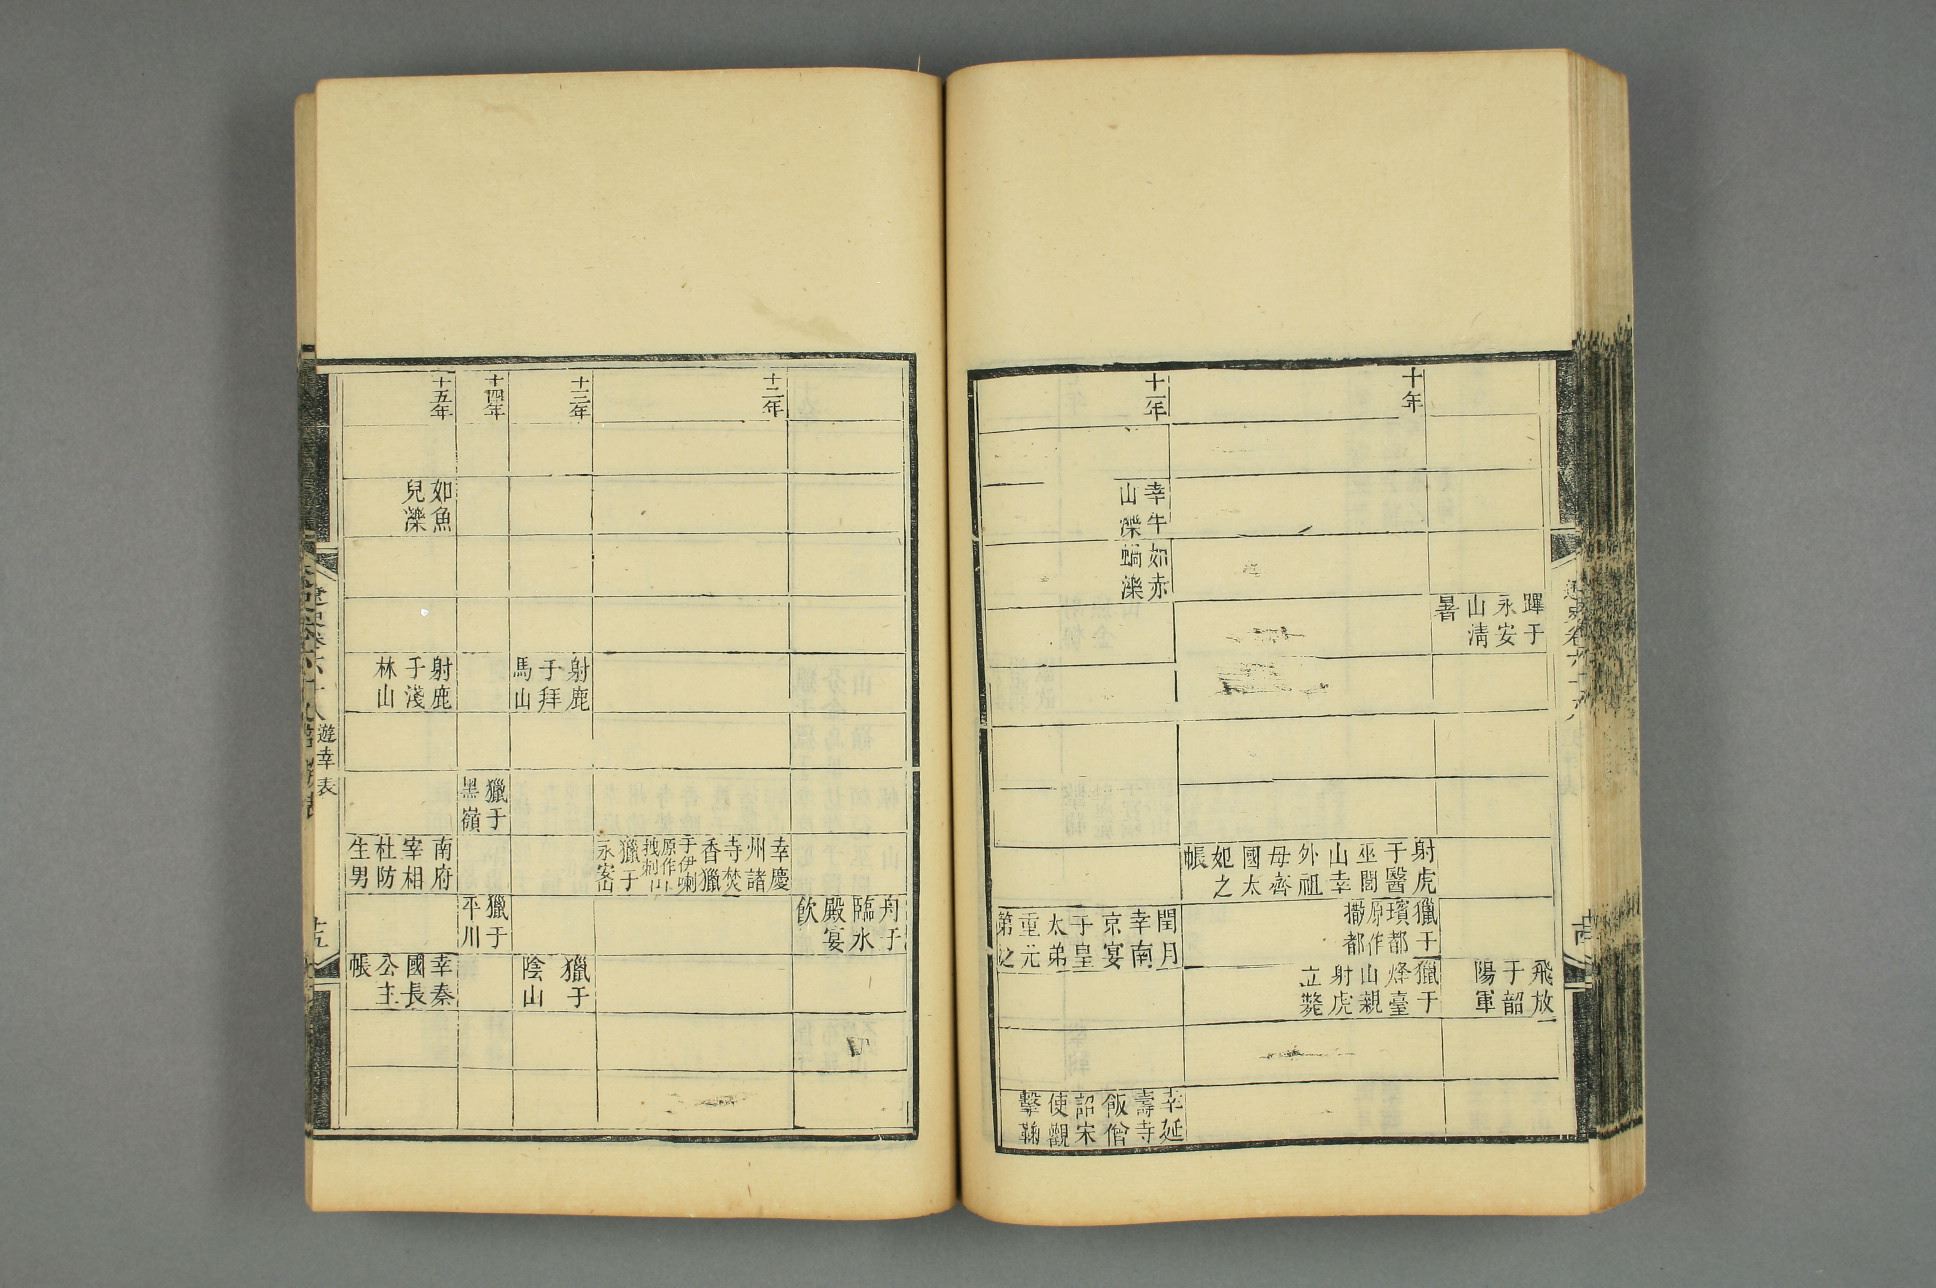 蹕于
永安
山清
暑
飛放
于韶
陽軍
十年
射虎
于醫
巫閭
山幸
外祖
母齊
國太
妃之
帳
獵于
瑸都
原作
撒都
獵于
烽臺
山親
射虎
立斃
十一年
幸牛
山濼
如赤
蝸濼
閏月
幸南
京宴
于皇
太弟
重元
第之
幸延
壽寺
飯僧
詔宋
使觀
擊鞠
舟于
臨水
殿宴
飲
十二年
幸慶
州諸
寺焚
香獵
于伊喇
原作
拽剌山
獵于
永峦
十三年
射鹿
于拜
馬山
獵于
陰山
十四年
獵于
黑嶺
獵于
平川
十五年
如魚
兒濼
射鹿
于淺
林山
南府
宰相
杜防
生男
幸秦
國長
公主
帳
遼史卷六十八 遊幸表
十五